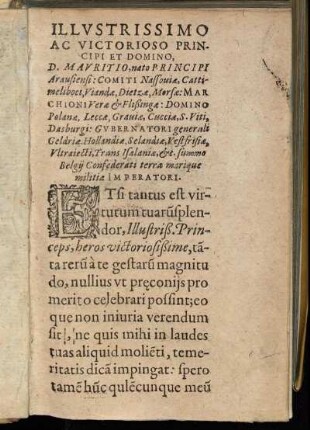 ILLVSTRISSIMO
AC VICTORIOSO PRIN-
CIPI ET DOMINO,
D. MAVRITIO, nato PRINCIPI
Arausiensi: COMITI Nassouiæ, Catti-
meliboci, Viandæ, Dietzæ, Mœrsæ: MAR-
CHIONI Veræ & Flißingæ: DOMINO
Polanæ, Leccæ, Grauiæ, Cuccia, S. Viti,
Dasburgi: GVBERNATORI generali
Geldriæ: Hollandiæ, Selandiæ, Vestfrisiæ,
Vltraiecti, Trans Isalaniæ, &c. summo
Belgij Confœderati terra marique
militiæ IMPERATORI.
ETsi tantus est vir-
tutum tuarũ splen-
dor, Illustriß. Prin-
ceps, heros victoriosißime, tã-
ta rerũ à te gestarũ magnitu
do, nullius vt præconijs pro
merito celebrari possint; eo
que non iniuria verendum
sit, ne quis mihi in laudes
tuas aliquid moliẽti, teme-
ritatis dicã impingat: spero
tamẽ hũc qulẽcunque meũ